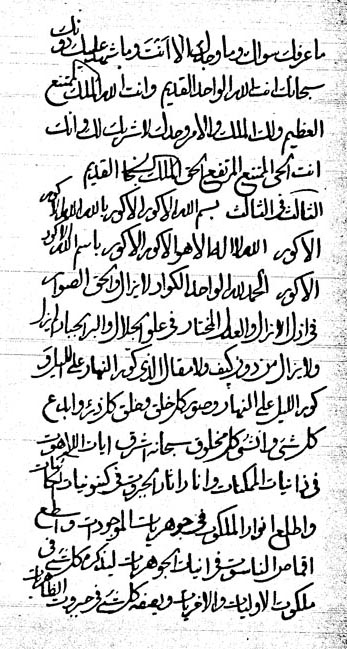 ما عرفك سواك وما وجدك الا انت وما شهد عليك دونك
سبحانك انت الله الواحد القديم وانت الله الملك الممتنع
العظيم ولك الملك والامر وحدك لا شريك لك وانك
انت الحي الممتنع المرتفع الحي الملك القديم
الثالث في الثالث بسم الله الاكور الاكور بالله الله الاكور
الاكور الله لا اله الا هو الاكور الاكور باسم الله الاكور
الاكور الحمد لله الواحد الكوار لا يزال والحق الصوار
في ازل الازال والعلم المختار في علو الجلال والبر الجبار لم يزل
ولا يزال من دون كيف ولا مقال الذي كور النهار على الليل و
كور الليل على النهار وصور كل خلق وخلق كل ذرء وابدع
كل شيء وانشق كل مخلوق سبحانه اشرق ايات اللاهوت
في ذاتيات الممكنات وانار اثار الجبروت في كينونيات الكائنات
واطلع انوار الملكوت في جوهريات الموجودات واسطع
اقماص الناسوت في انيات الجوهريات ليذكره كل شيء في
ملكوت الاوليات والاخريات ويصفه كل شيء في جبروت الظاهريات